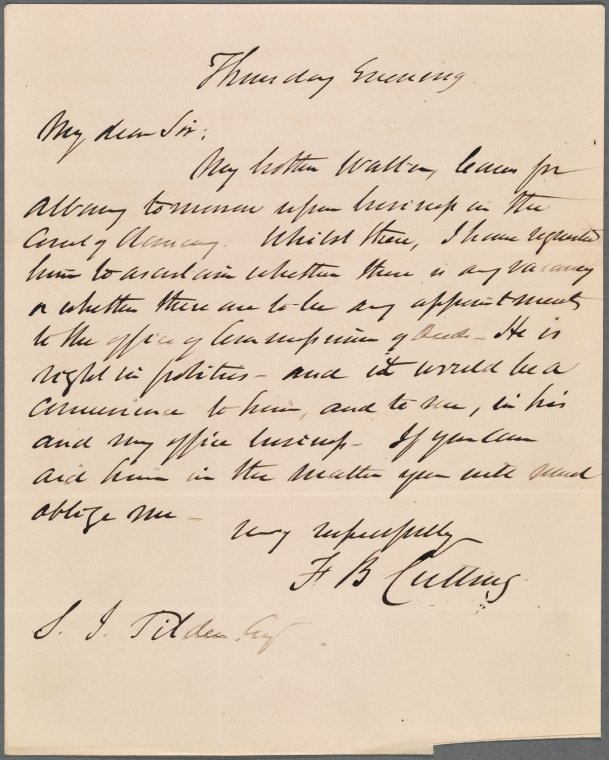 Thursday Evening
My dear Sir;
My brother Walter, leaves for
Albany tomorrow upon business in the
Court of Chancery. Whilst there, I have requested
him to ascertain whether there is any vacancy
or whether there are to be any appointments
to the office of Commissioner of Deeds - He is
right in politics - and it would be a
convenience to him, and to me, in his
and my office business - If you can
aid him in the matter you will much
oblige me -
very respectfully
F B Cutting
S. J. Tilden Esq